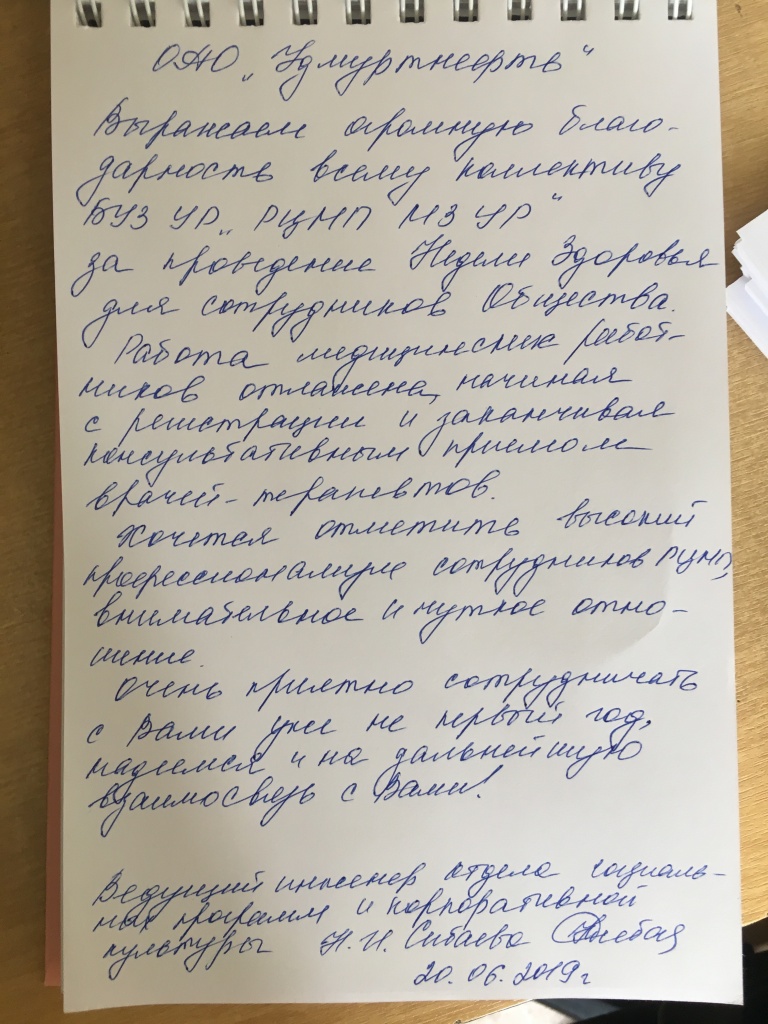 ОАО „Удмуртнефть"
Выражаем огромную благо-
дарность всему коллективу
БУЗ УР „РЦМП МЗ УР"
за проведение Недели Здоровья
для сотрудников Общества.
Работа медицинских работ-
ников отлажена, начиная
с регистрации и заканчивая
консультативным приемом
врачей-терапевтов.
Хочется отметить высокий
профессионализм сотрудников РЦМП,
внимательное и чуткое отно-
шение.
Очень приятно сотрудничать
с Вами уже не первый год,
надеемся и на дальнейшую
взаимосвязь с Вами!
Ведущий инженер отдела социаль-
ных программ и корпоративной
культуры Н.И. Сибаева
20.06.2019г